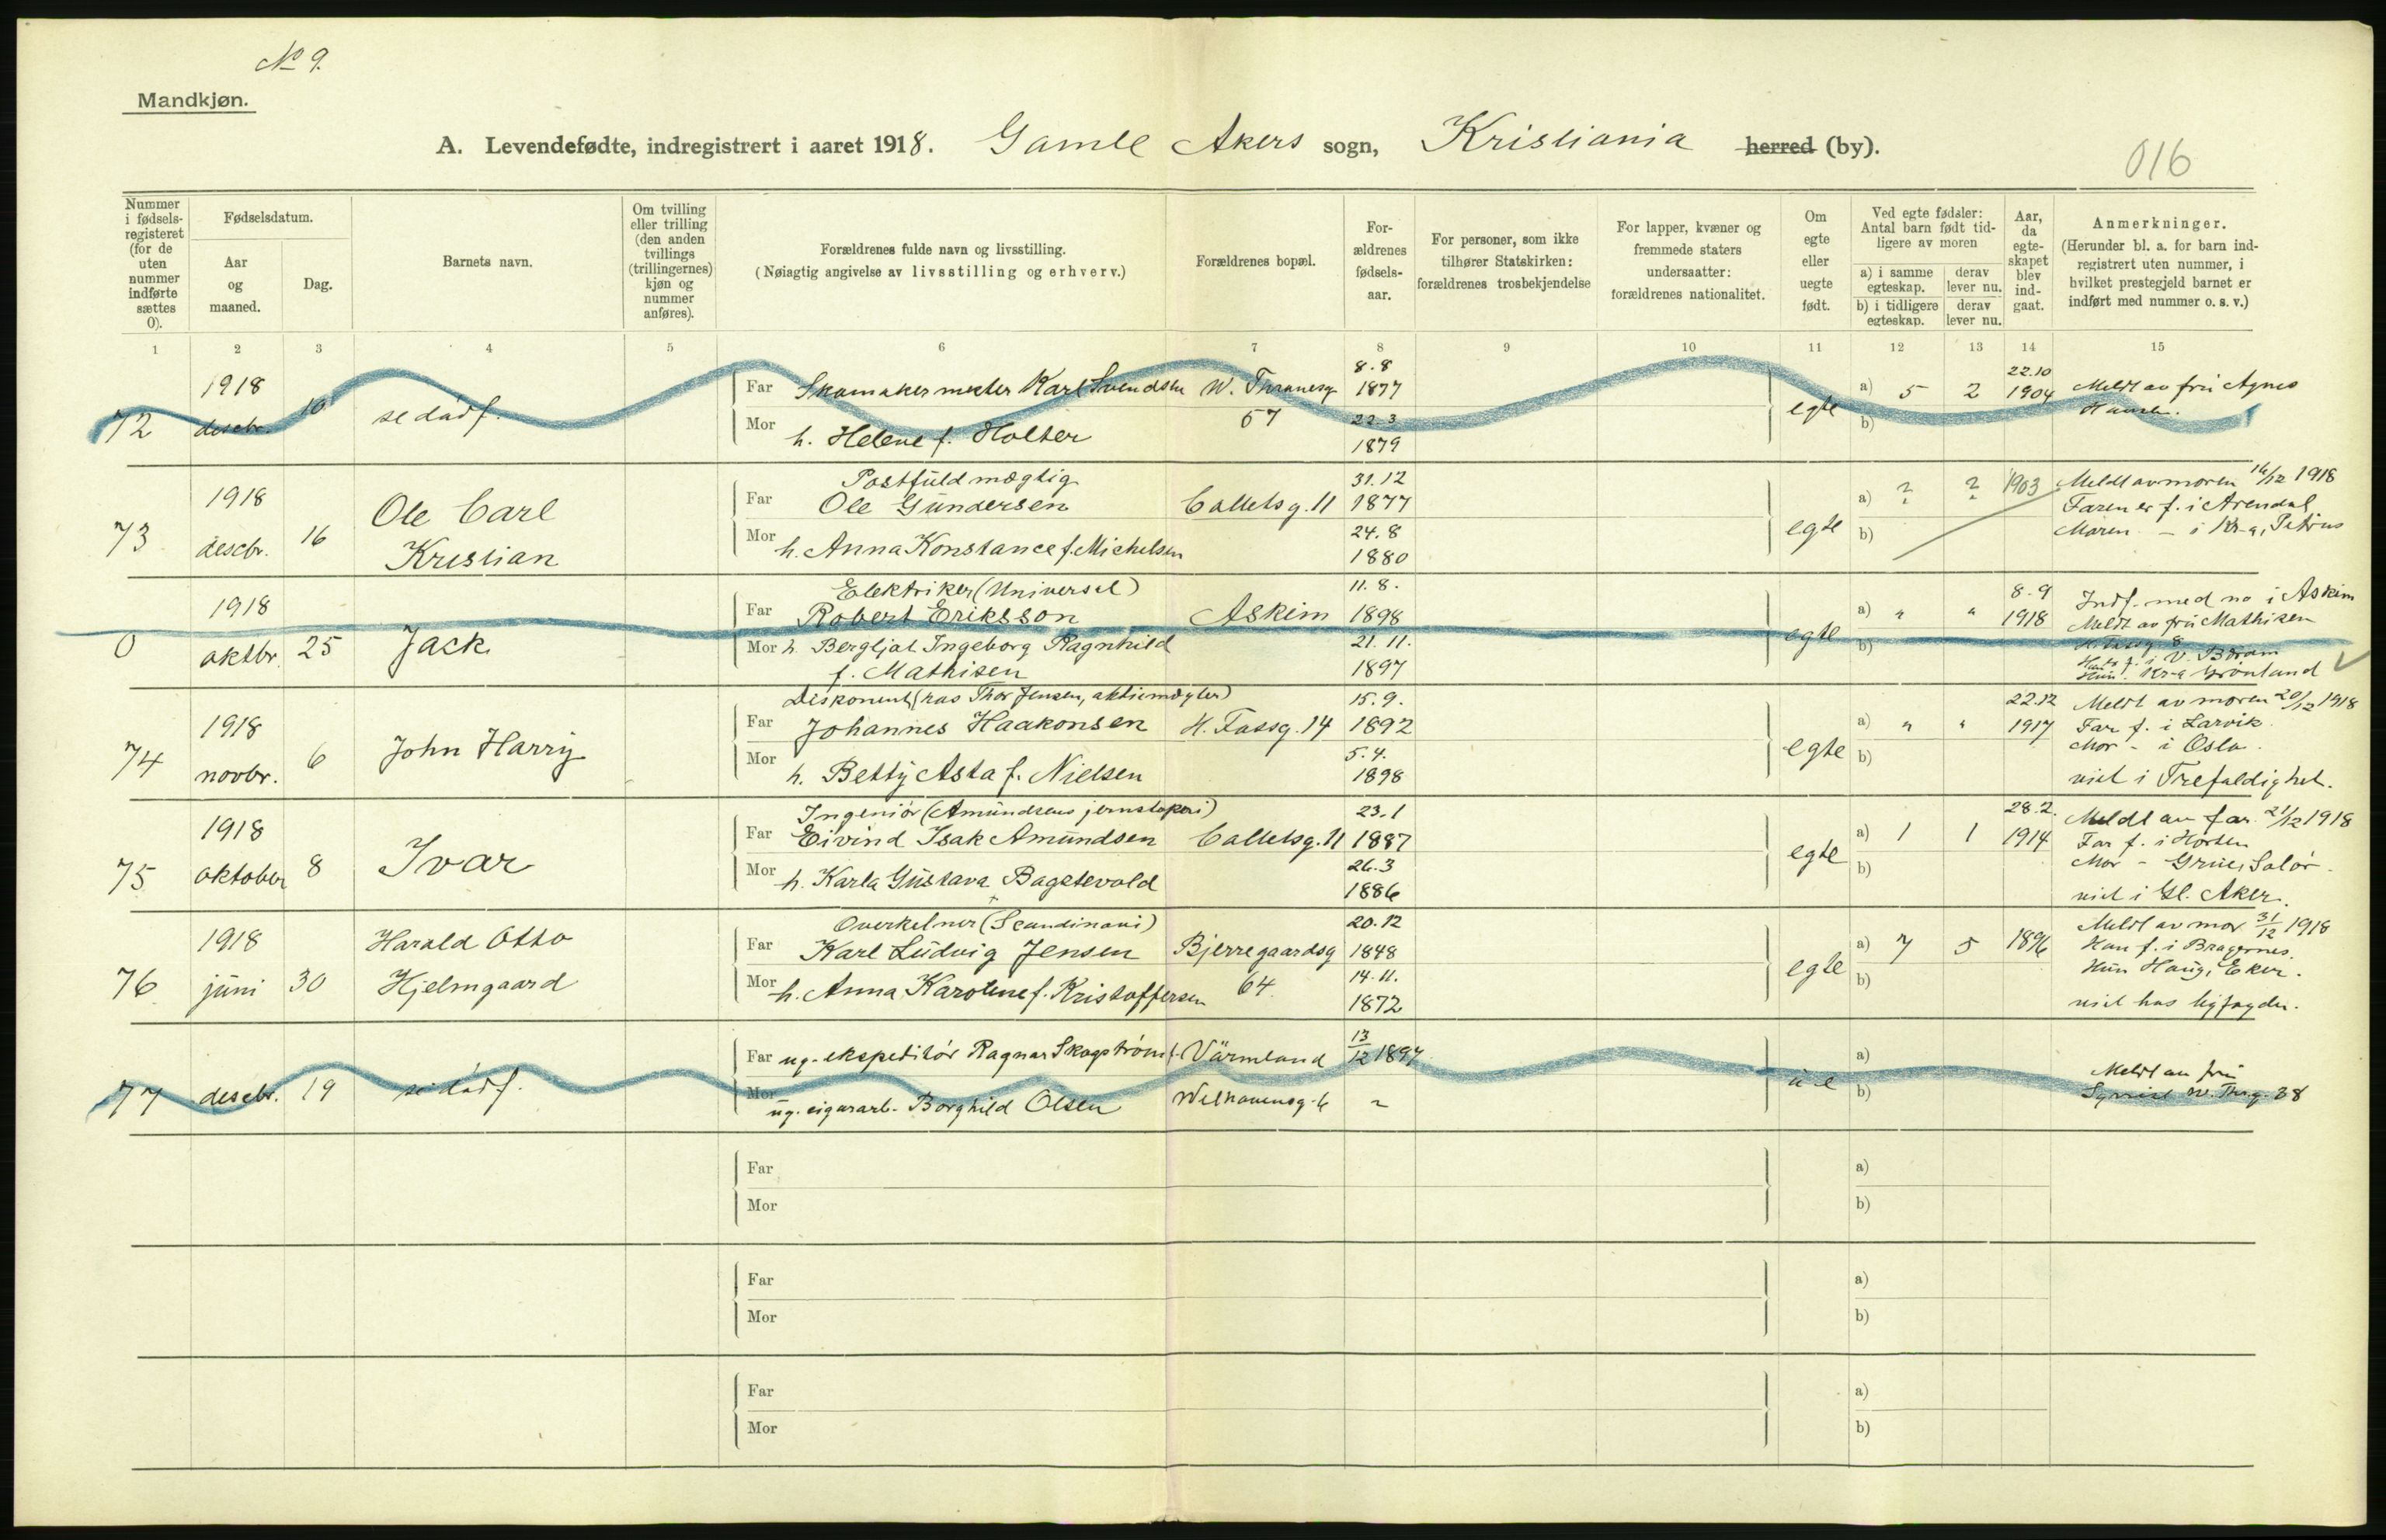 No 9.
Mandkjøn.
A. Levendefødte, indregistrert i aaret 1918. Gamle Akers sogn, Kristiania herred (by).
016
Nummer i fødsels-registeret (for de uten nummer indførte sættes 0).
Fødselsdatum.
Aar og maaned.
Dag.
Barnets navn.
Om tvilling eller trilling (den anden tvillings (trillingernes) kjøn og nummer anføres).
Forældrenes fulde navn og livsstilling.
(Nøiagtig angivelse av livsstilling og erhverv.)
Forældrenes bopæl.
For-ældrenes fødsels-aar.
For personer, som ikke tilhører Statskirken: forældrenes trosbekjendelse
For lapper, kvæner og fremmede staters undersaatter: forældrenes nationalitet.
Om egte eller uegte født.
Ved egte fødsler: Antal barn født tid-ligere av moren
a) i samme egteskap.
derav lever nu.
b) i tidligere egteskap.
derav lever nu.
Aar, da egte-skapet blev ind-gaat.
Anmerkninger.
(Herunder bl. a. for barn ind-registrert uten nummer, i hvilket prestegjeld barnet er indført med nummer o. s. v.)
1 2 3 4 5 6 7 8 9 10 11 12 13 14 15
72 1918 desebr. 10 se dødf.
Far Skomakermester Karl Svendsen W. Thranesg 8.8 1877
Mor h. Helene f. Holter 57 22.3 1879
egte a) 5 2 22.10 1904 Meldt av fru Agnes
b)
73 1918 desebr. 16 Ole Carl Kristian
Postfuldmægtig
Far Ole Gundersen Calletsg. 11 31.12 1877
Mor h. Anna Konstance f. Michelsen 24.8 1880
egte a) ? ? 1903 Meldt av moren 16/12 1918
Faren er f. i Arendal
b) Moren - i Kr-a, Petrus
0 1918 oktbr. 25 Jack
Elektriker (Universel)
Far Robert Eriksson Askim 11.8. 1898
Mor h. Bergljot Ingeborg Ragnhild f. Mathisen 21.11. 1897
egte a) " " 8.9 1918 Indf. med no i Askim
Meldt av fru Mathisen
b)
Hun f. Kr-a Grønland
74 1918 novbr. 6 John Harry
Diskonent (hos Thor Jensen, aktiemægler)
Far Johannes Haakonsen H. Fossg. 14 15.9. 1892
Mor h. Betty Asta f. Nielsen 5.4. 1898
egte a) " " 22.12 1917 Meldt av moren 20/12 1918
Far f. i Larvik
b) Mor - i Oslo.
viet i Trefoldighet.
75 1918 oktober 8 Ivar
Ingeniør (Amundsens jernstøperi)
Far Eivind Isak Amundsen Calletsg. 11 23.1 1887
Mor h. Karla Gustava Bagstevold 26.3 1886
egte a) 1 1 28.2. 1914 Meldt av far 21/12 1918
Far f. i Horten
b) Mor - Grue, Solør.
viet i Gl. Aker.
76 1918 juni 30 Harald Otto Hjelmgaard
Overkelner (Scandinavi)
Far Karl Ludvig Jensen Bjerregaardsg 20.12 1848
Mor h. Anna Karoline f. Kristoffersen 64 14.11. 1872
egte a) 7 5 1896 Meldt av mor 31/12 1918
Han f. i Bragernes.
b) Hun Haug, Eker.
viet hos byfogden.
77 desebr. 19 se dødf.
Far ug. ekspeditør Ragnar Skogstrøm f. Värmland 13/12 1897
Mor ug. cigararb. Borghild Olsen Welhavensg. 6 ~
u e a) Meldt av fru
b) W. Thrg. 38
Far a)
Mor b)
Far a)
Mor b)
Far a)
Mor b)